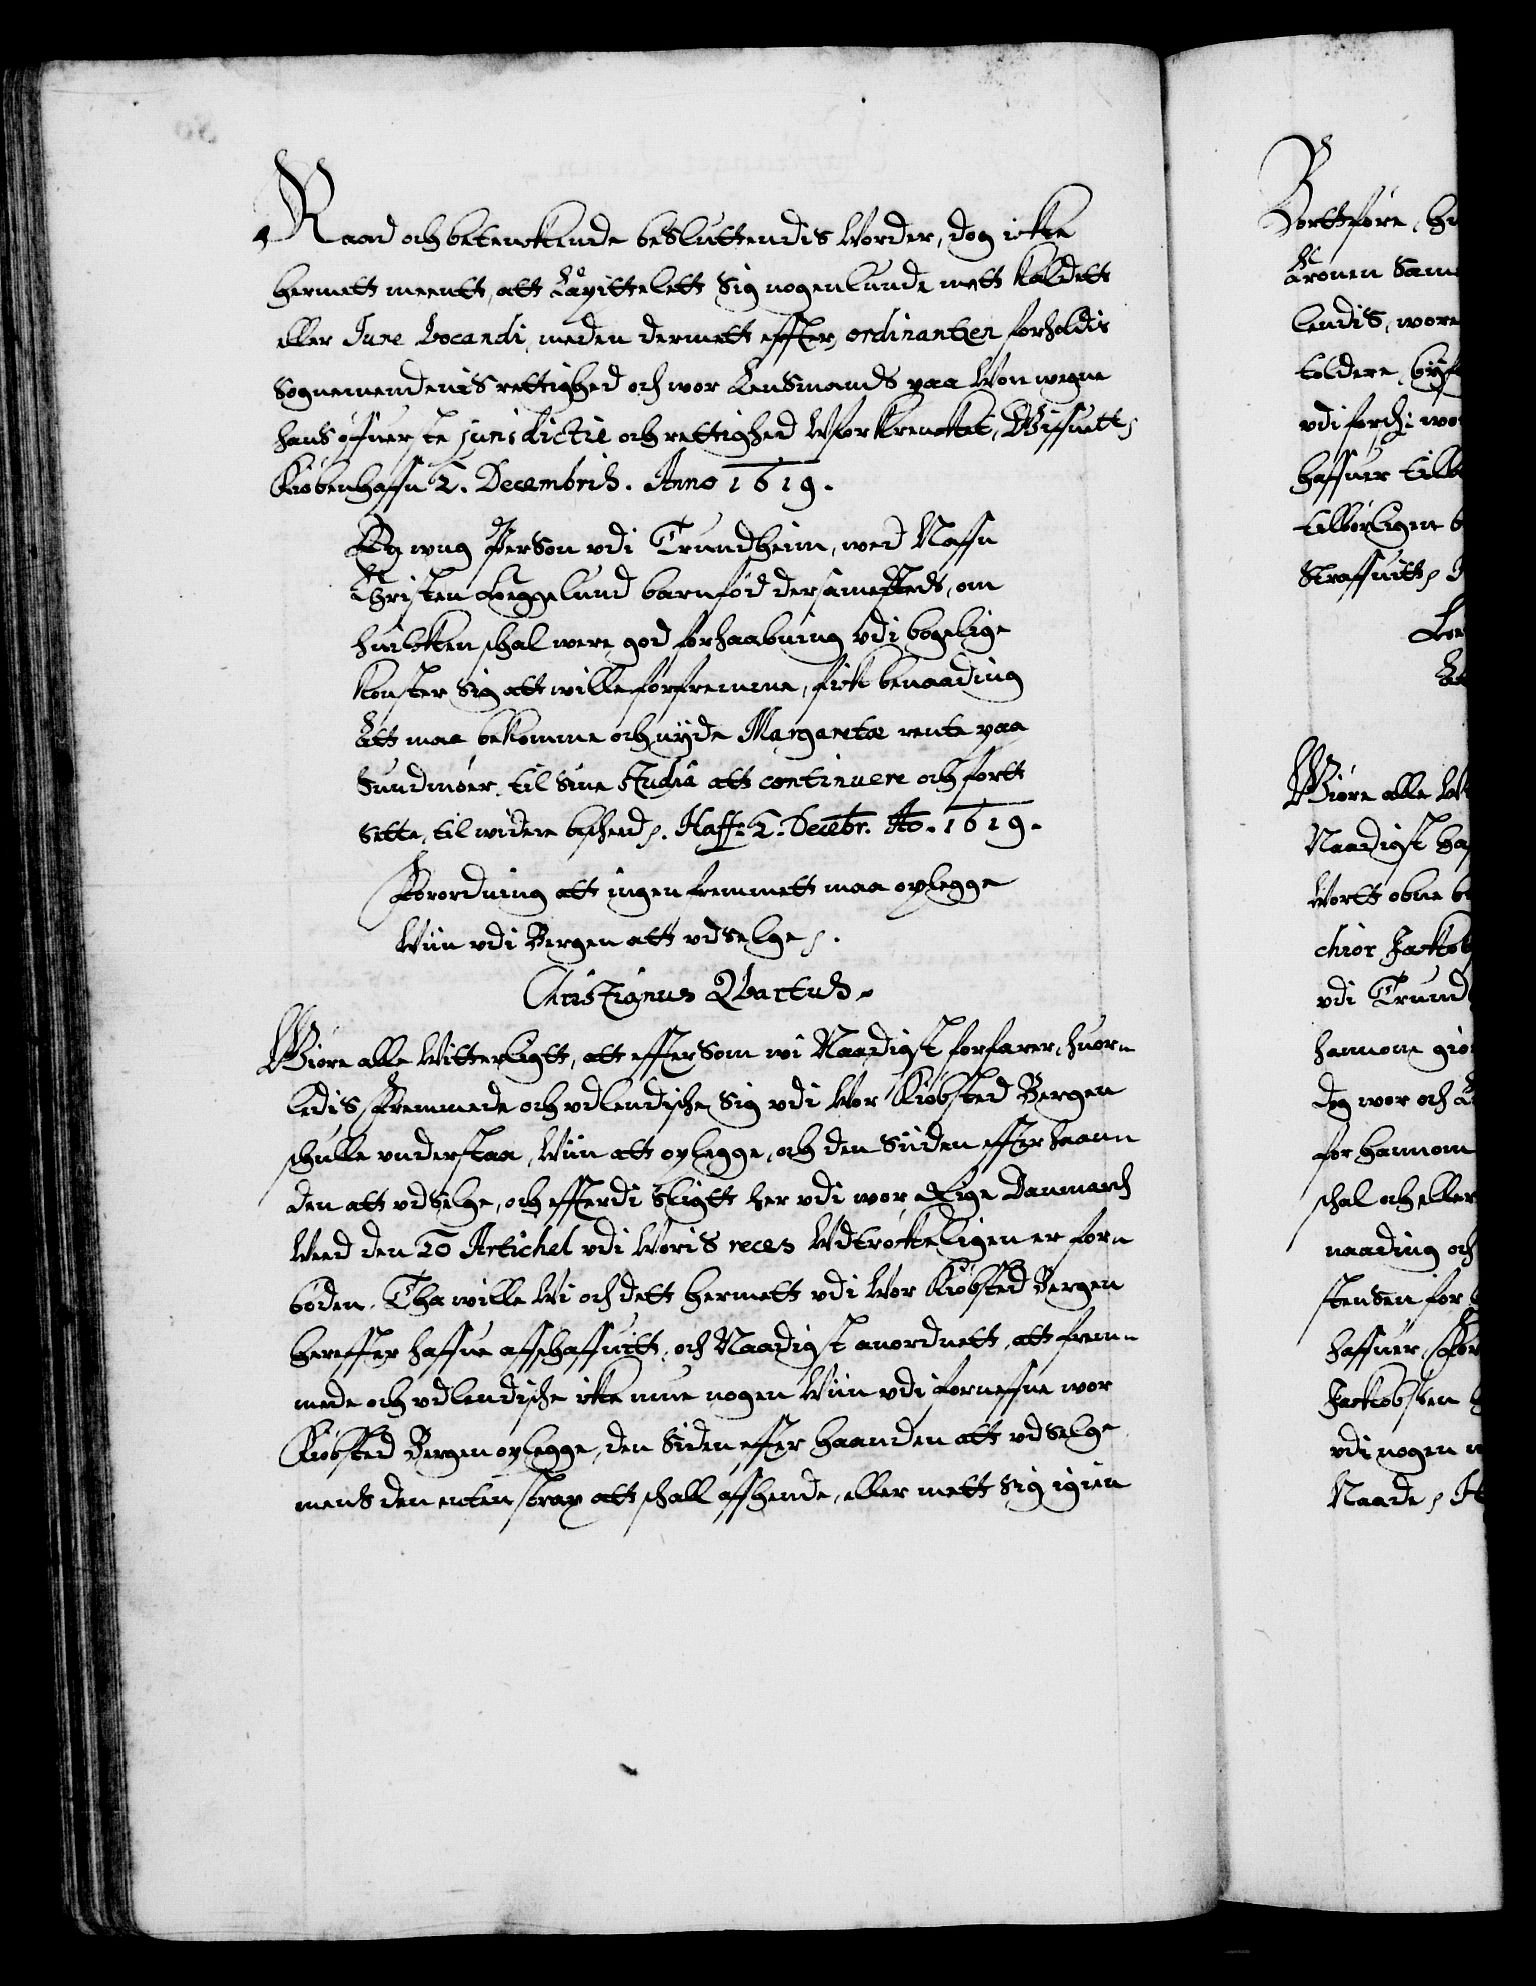 Raad och betenckende besluttendis Vorder, dog icke
hermett meentt, att Capittelett sig nogenlunde mett kaldett
eller Jure Vocandi, meden dermett effter ordinantzen forholdis
Sognemendenis rettighed och vor Lensmands paa Vor wegne
hans øffuerste jurisdictie och rettighed Vforkrencket, Giffuett
Kiøbenhaffn 2. Decembris. Anno 1619.
En ung Person vdi Trundheim, wed Naffn
Christen Leggelund barnfød dersamesteds, om
huilcken schal were god forhaabning vdi bogelige
konster sig att wille forfremme, fick benaading
att maa bekomme och nyde Margaretæ rente paa
Sundmøer, til sine Studia att continuere och fortt
sette, til widere besched. Haff: 2. Decebr. Ao. 1619.
Forordning att ingen fremmett maa oplegge
Viin vdi Bergen att vdselge.
Christianus Qvartus.
Giøre alle Vitterligtt, att efftersom wi Naadigst forfarer, huor-
ledis fremmede och vdlendische sig vdi Vor Kiøbsted Bergen
schulle vnderstaa, Viin att oplegge, och den siiden effter haan-
den att vdselge, och effterdi sligtt her vdi wor Rige Danmarch
Veed den 20 Artichel vdi Voris reces Vdtrøckeligen er for-
boden. Tha wille Vi och dett hermett vdi Vor Kiøbsted Bergen
hereffter haffue affschaffuitt, och Naadigst anordnett, att frem-
mede och vdlendische icke mue nogen Viin vdi forneffne wor
Kiøbsted Bergen oplegge, den siden effter haanden att vdselge
mens den enten strax att schall affhende, eller mett sig igien
Bortføre,
Cronen
lendis, wore
toldere,
vdi
haffuer
tilbørligen
Straffuitt
Giøre alle
Naadigst
Vortt obne
chior Jackob
vdi Trund
hannom
Dog wor och
for hannom
schal och eller
naading och
stensen for
haffuer,
Jackobsten
vdi nogen
Naade